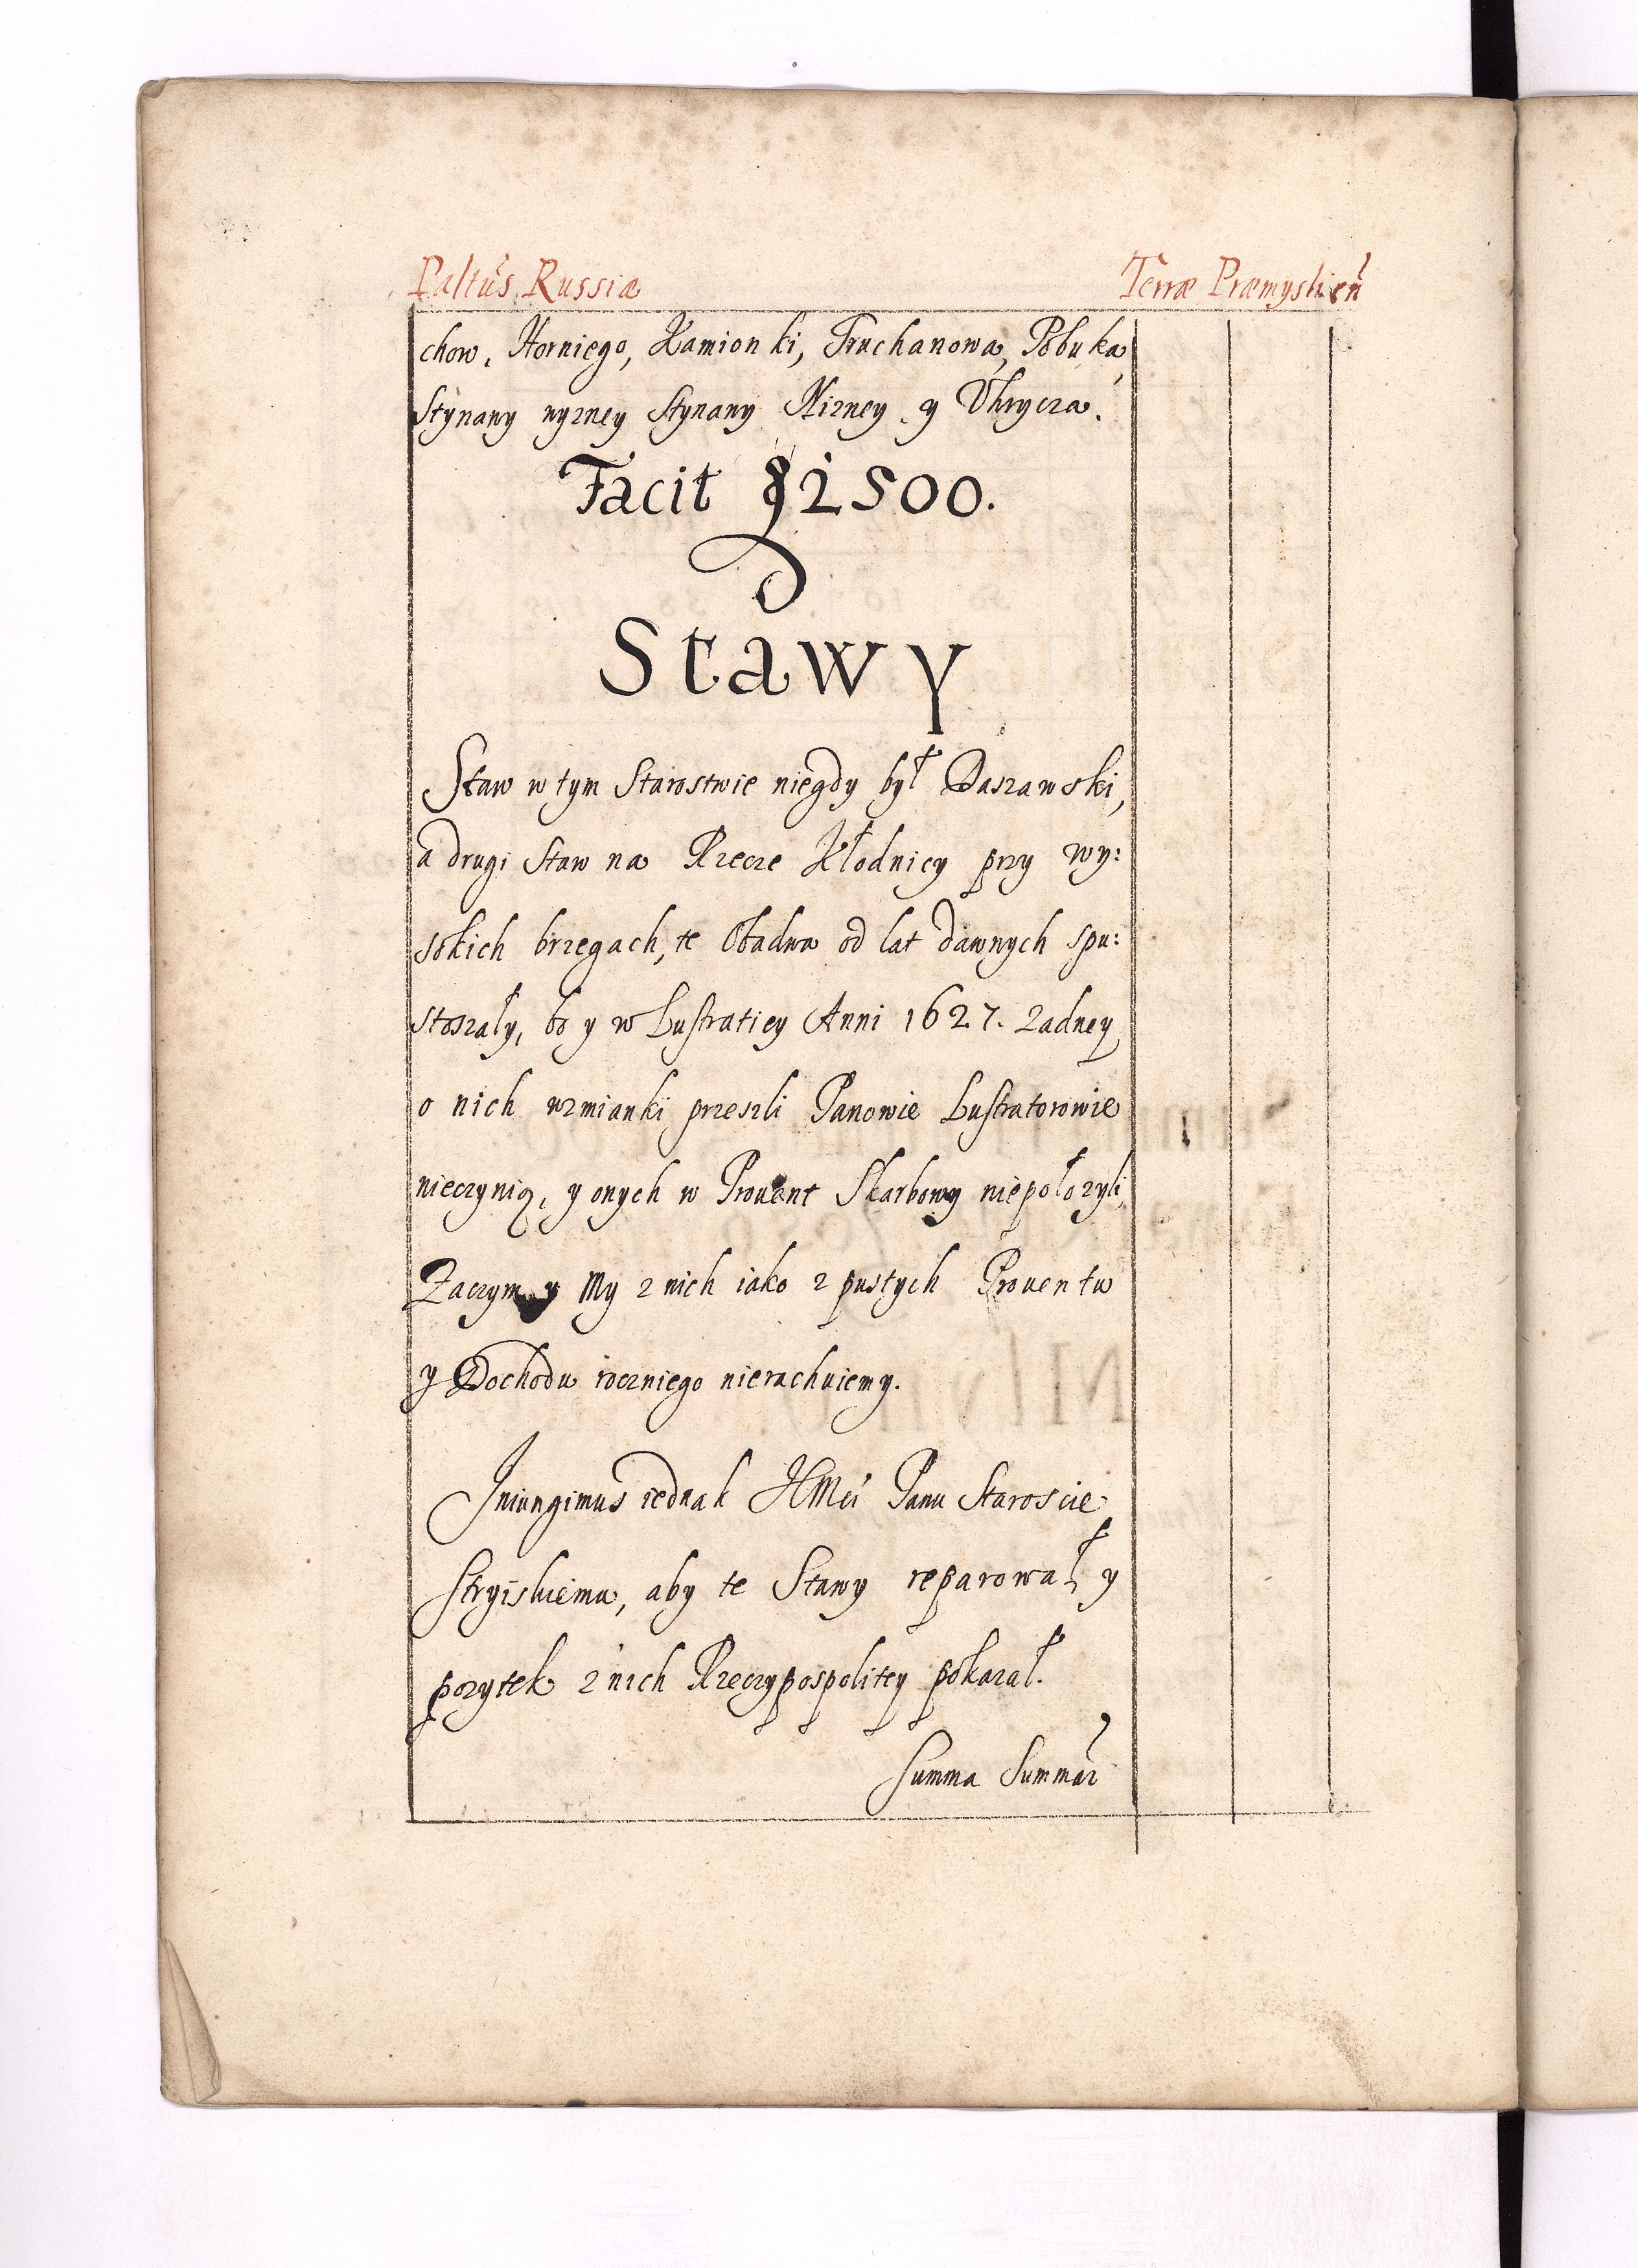 Paltus Russiæ Terræ Præmyslien
chow, Horniego, Kamionki, Truchanowa, Pobuka,
Stynawy wyzney Stynawy Nizney y Uhrycza.
Facit 2500.
Stawy
Staw w tym Starostwie niegdy był Daszawski,
a drugi Staw na Rzecze Kłodnicy przy wy:
sokich brzegach, te Obadwa od lat dawnych spu:
stoszały, bo y w Lustratiey Anni 1627. Zadney
o nich wzmianki przeszli Panowie Lustratorowie
nieczynią, y onych w Prouent Skarbowy niepołozyli,
Zaczym y My z nich iako z pustych Prouentu
y Dochodu rocznego nierachuiemy.
Iniungimus iednak JMci Panu Staroscie
Stryiskiemu, aby te Stawy reparował, y
pozytek z nich Rzeczypospolitey pokazał.
Summa Summar